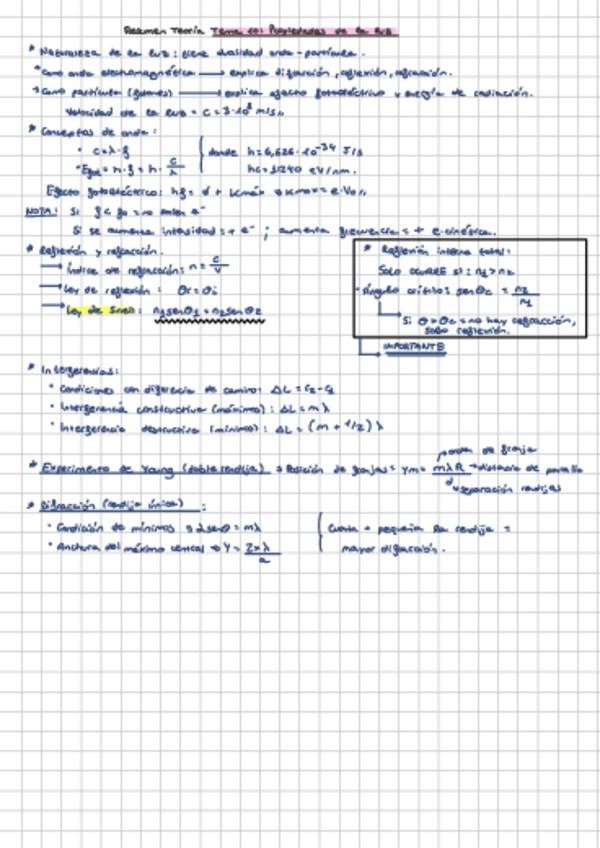 Resumen Teoría Tema 10: Propiedades de la luz
* Naturaleza de la luz: tiene dualidad onda-partícula.
* Como onda electromagnética → explica difracción, reflexión, refracción.
* Como partícula (fotones) → explica efecto fotoeléctrico y energía de radiación.
Velocidad de la luz = c = 3·10⁸ m/s
* Conceptos de onda:
· c = λ·f
· Efot = h·f = h· c/λ
donde h = 6,626·10⁻³⁴ J/s
hc = 1240 eV/nm.
Efecto fotoeléctrico: hf = ϕ + Kmáx → Kmax = e·V₀
NOTA: Si f < f₀ = no salen e⁻
Si se aumenta intensidad = + e⁻ ; aumenta frecuencia = + e.cinética.
* Reflexión y refracción.
→ Índice de refracción: n = c/v
→ Ley de reflexión: θr = θi
→ Ley de Snell: n₁ senθ₁ = n₂ senθ₂
* Reflexión interna total:
Solo ocurre si: n₁ > n₂
· Ángulo crítico: senθc = n₂/n₁
Si θ > θc = no hay refracción,
solo reflexión.
IMPORTANTE
* Interferencias:
· Condiciones con diferencia de camino: ΔL = r₂ - r₁
· Interferencia constructiva (máximo): ΔL = mλ
· Interferencia destructiva (mínimo): ΔL = (m + 1/2) λ
* Experimento de Young (doble rendija) → Posición de franjas = ym = mλR/d
orden de franja
→ distancia de pantalla
separación rendijas
* Difracción (rendija única):
· Condición de mínimos → a senθ = mλ
· Anchura del máximo central → Y = 2xλ/a
Cuanto + pequeña la rendija =
mayor difracción.